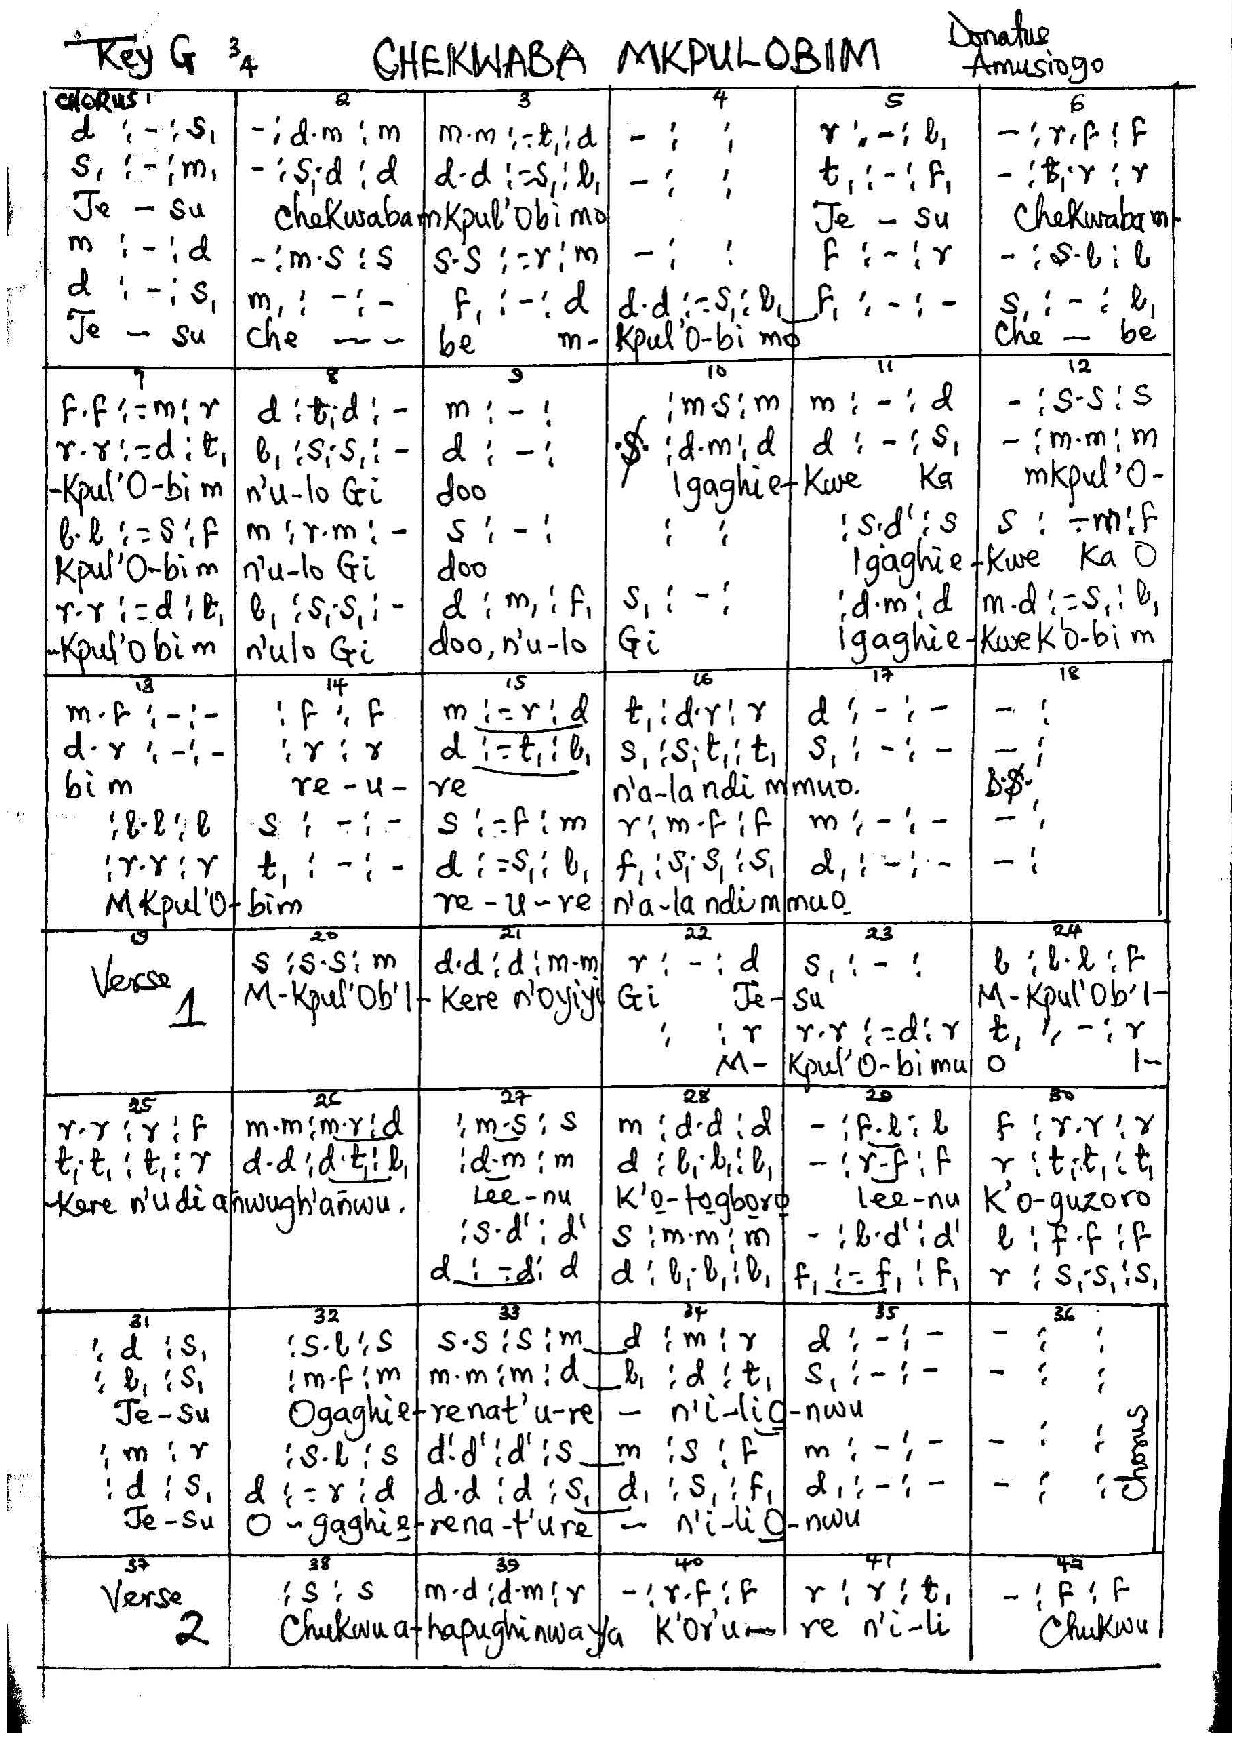 Key G 3/4 CHEKWABA MKPULOBIM Donatus Amusiogo
CHORUS 1 2 3 4 5 6
d :-:s, -:d.m:m m.m:=t,:d -: : r:-:l, -:r.f:f
s,:-:m, -:s,.d:d d.d:=s,:l, -: : t,:-:f, -:t,.r:r
Je - su cheKwabamKpul'Obimo Je - su cheKwabam-
m :-:d -:m.s:s s.s:=r:m -: : f:-:r -:s.l:l
d :-:s, m,:-:- f,:-:d d.d:=s,:l, f,:-:- s,:-:l,
Je - su che --- be m- Kpul'O-bi mo che - be
7 8 9 10 11 12
f.f:=m:r d:t,.d:- m:-: :m.s:m m:-:d -:s.s:s
r.r:=d:t, l,:s,.s,:- d:-: .S. :d.m:d d:-:s, -:m.m:m
-Kpul'O-bim n'u-lo Gi doo Igaghie-Kwe Ka mKpul'O-
l.l:=s:f m:r.m:- s:-: : : :s.d':s s:=m:f
Kpul'O-bim n'u-lo Gi doo Igaghie-Kwe Ka O
r.r:=d:t, l,:s,.s,:- d:m,:f, s,:-: :d.m:d m.d:=s,:l,
-Kpul'Obim n'ulo Gi doo, n'u-lo Gi Igaghie-KweK'O-bim
13 14 15 16 17 18
m.f:-:- :f:f m:=r:d t,:d.r:r d:-:- -:
d.r:-:- :r:r d:=t,:l, s,:s,.t,:t, s,:-:- -:
bim re-u-re n'a-la ndi mmuo. D.S.
:l.l:l s:-:- s:=f:m r:m.f:f m:-:- -:
:r.r:r t,:-:- d:=s,:l, f,:s,.s,:s, d,:-:- -:
MKpul'O-bim re-u-re n'a-la ndimmuo
19 20 21 22 23 24
Verse 1 s:s.s:m d.d:d:m.m r:-:d s,:-: l:l.l:f
M-Kpul'Ob'I-Kere n'oyiyi Gi Je-su M-Kpul'Ob'I-
: :r r.r:=d:r t,:-:r
M-Kpul'O-bimu O I-
25 26 27 28 29 30
r.r:r:f m.m:m.r:d :m.s:s m:d.d:d -:f.l:l f:r.r:r
t,.t,:t,:r d.d:d.t,:l, :d.m:m d:l,.l,:l, -:r.f:f r:t,.t,:t,
-Kere n'udi añwugh'añwu. Lee-nu K'o-togboro Lee-nu K'o-guzoro
:s.d':d' s:m.m:m -:l.d':d' l:f.f:f
d:=d:d d:l,.l,:l, f,:=f,:f, r:s,.s,:s,
31 32 33 34 35 36
:d:s, :s.l:s s.s:s:m d:m:r d:-:- -: :
:l,:s, :m.f:m m.m:m:d l,:d:t, s,:-:- -: :
Je-su Ogaghie-renat'u-re - n'i-liO-nwu
:m:r :s.l:s d'.d':d':s m:s:f m:-:- -: :
:d:s, d:=r:d d.d:d:s, d,:s,:f, d,:-:- -: : Chorus
Je-su O-gaghie-rena-t'ure - n'i-liO-nwu
37 38 39 40 41 42
Verse 2 :s:s m.d:d.m:r -:r.f:f r:r:t, -:f:f
Chukwu a-hapughinwaya K'or'u-re n'i-li Chukwu